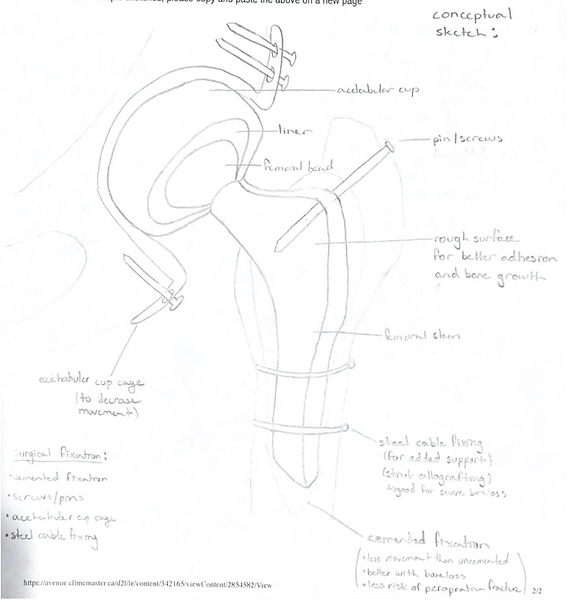 please copy and paste the above on a new page
conceptual
sketch:
acetabular cup
liner
femoral head
pin/screws
rough surface
for better adhesion
and bone growth
femoral stem
acetabular cup cage
(to decrase
movement)
steel cable fixing
(for added support)
(strut allografting)
good for severe boneloss
surgical fixation:
•cemented fixation
•screws/pins
•acetabular cup cage
•steel cable fixing
cemented fixation
•less movement than uncemented
•better with boneloss
•less risk of periprosthetic fracture
https://avenue.cllmcmaster.ca/d2l/le/content/342165/viewContent/2854582/View
2/2